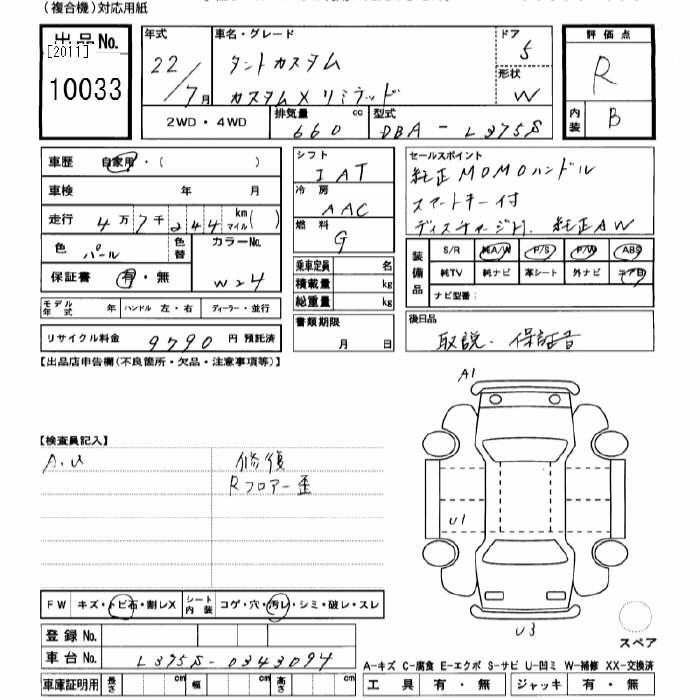 (複合機)対応用紙
出品No. [2011] 10033
年式 22/7月
車名・グレード タントカスタム カスタムXリミテッド
ドア 5
形状 W
評価点 R
内装 B
2WD・4WD
排気量 660 cc
型式 DBA-L375S
車歴 自家用・( )
車検 年 月
走行 4万7千244 km マイル( )
色 パール
色替
カラーNo. W24
保証書 有・無
モデル年式 年 ハンドル 左・右 ディーラー・並行
リサイクル料金 9790 円 預託済
シフト IAT
冷房 AAC
燃料 G
乗車定員 名
積載量 kg
総重量 kg
書類期限 月 日
セールスポイント
純正MOMOハンドル
スマートキー付
ディスチャージH. 純正AW
装備品
S/R 純A/W P/S P/W ABS
純TV 純ナビ 革シート 外ナビ エアB
ナビ型番:
後日品
取説・保証書
【出品店申告欄(不良箇所・欠品・注意事項等)】
【検査員記入】
A.U 修復
Rフロアー歪
A1
U1
U3
スペア
FW キズ・トビ石・割レX
シート内装 コゲ・穴・汚レ・シミ・破レ・スレ
登録No.
車台No. L375S-0343094
車庫証明用 長さ cm 幅 cm 高さ cm
A-キズ C-腐食 E-エクボ S-サビ U-凹ミ W-補修 XX-交換済
工具 有・無 ジャッキ 有・無